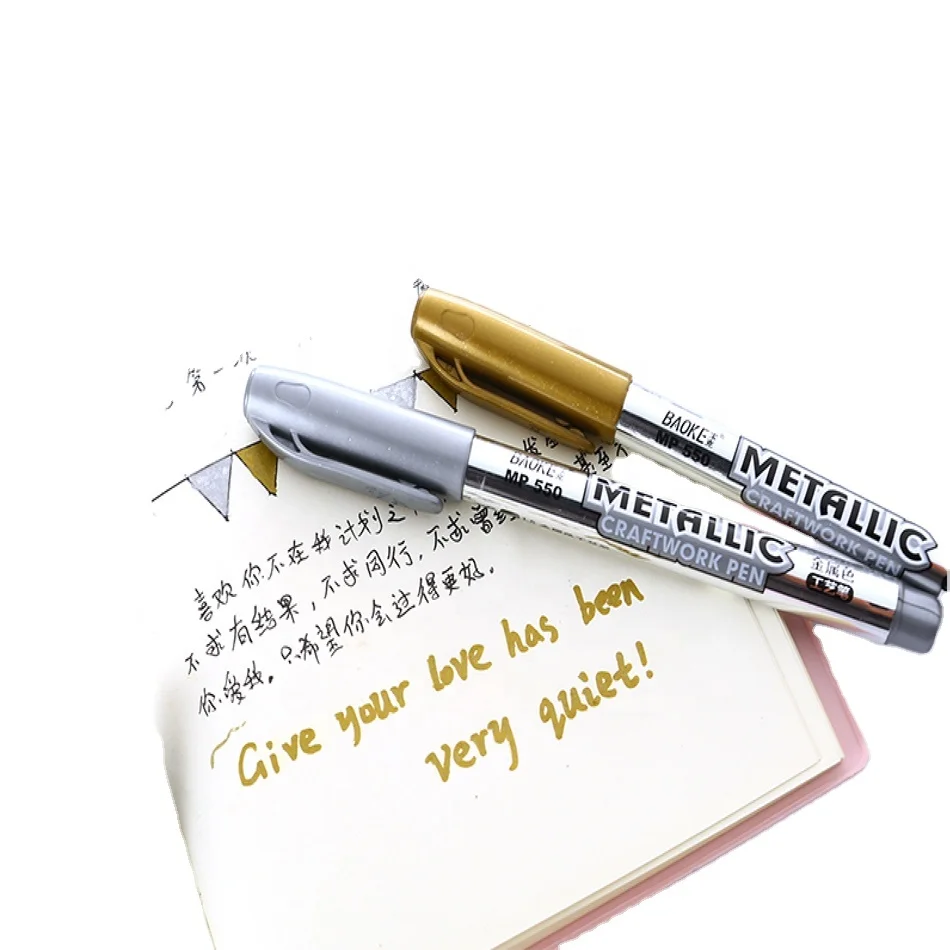 第一次
BAOKE 宝克
MP-550
METALLIC
CRAFTWORK PEN
BAOKE 宝克
MP-550
METALLIC
CRAFTWORK PEN
金属色
工艺笔
喜欢你不在我计划之
不求有结果，不求同行，不求曾经
你爱我。只希望你会过得更好。
Give your love has been
very quiet!